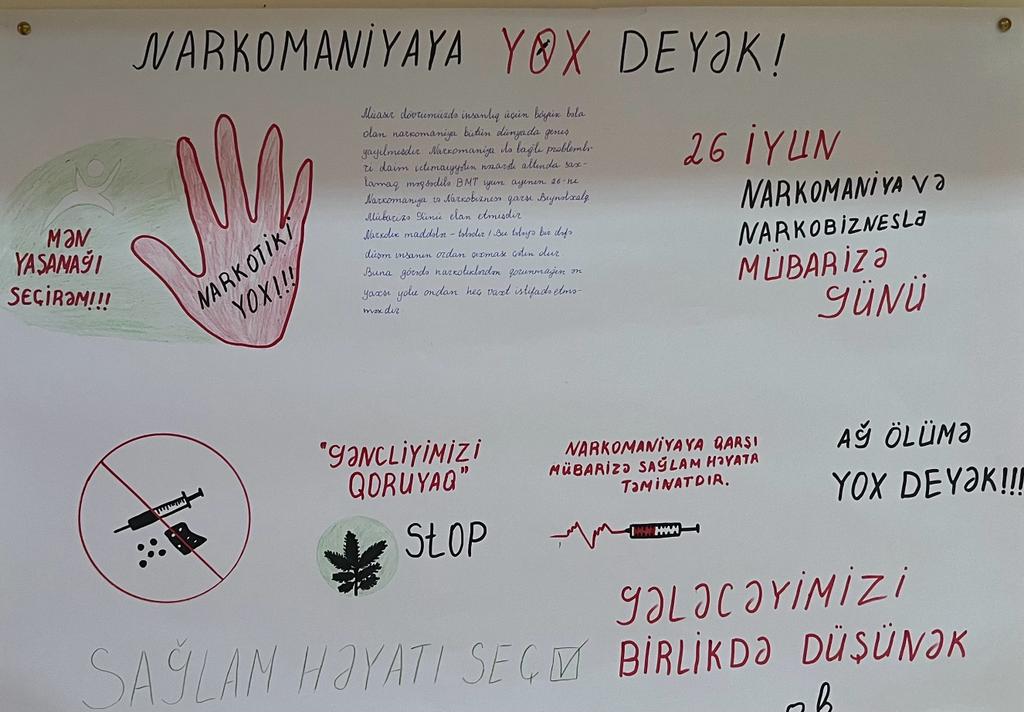 NARKOMANİYAYA YOX DEYƏK!
MƏN
YAŞAMAĞI
SEÇİRƏM!!!
NARKOTİKİ
YOX!!!
Müasir dövrümüzdə insanlıq üçün böyük bəla
olan narkomaniya bütün dünyada geniş
yayılmışdır. Narkomaniya ilə bağlı problemlə-
ri daim ictimaiyyətin nəzarəti altında sax-
lamaq məqsədilə BMT iyun ayının 26-nı
Narkomaniya və Narkobiznesə qarşı Beynəlxalq
Mübarizə Günü elan etmişdir
Narkotik maddələr - tələdir! Bu tələyə bir dəfə
düşən insanın ordan çıxması çətin olur
Buna görədə narkotiklərdən qorunmağın ən
yaxşı yolu ondan heç vaxt istifadə etmə-
məkdir
26 İYUN
NARKOMANİYA VƏ
NARKOBİZNESLƏ
MÜBARİZƏ
GÜNÜ
"GƏNCLİYİMİZİ
QORUYAQ"
STOP
NARKOMANİYAYA QARŞI
MÜBARİZƏ SAĞLAM HƏYATA
TƏMİNATDIR.
AĞ ÖLÜMƏ
YOX DEYƏK!!!
SAĞLAM HƏYATI SEÇ
GƏLƏCƏYİMİZİ
BİRLİKDƏ DÜŞÜNƏK